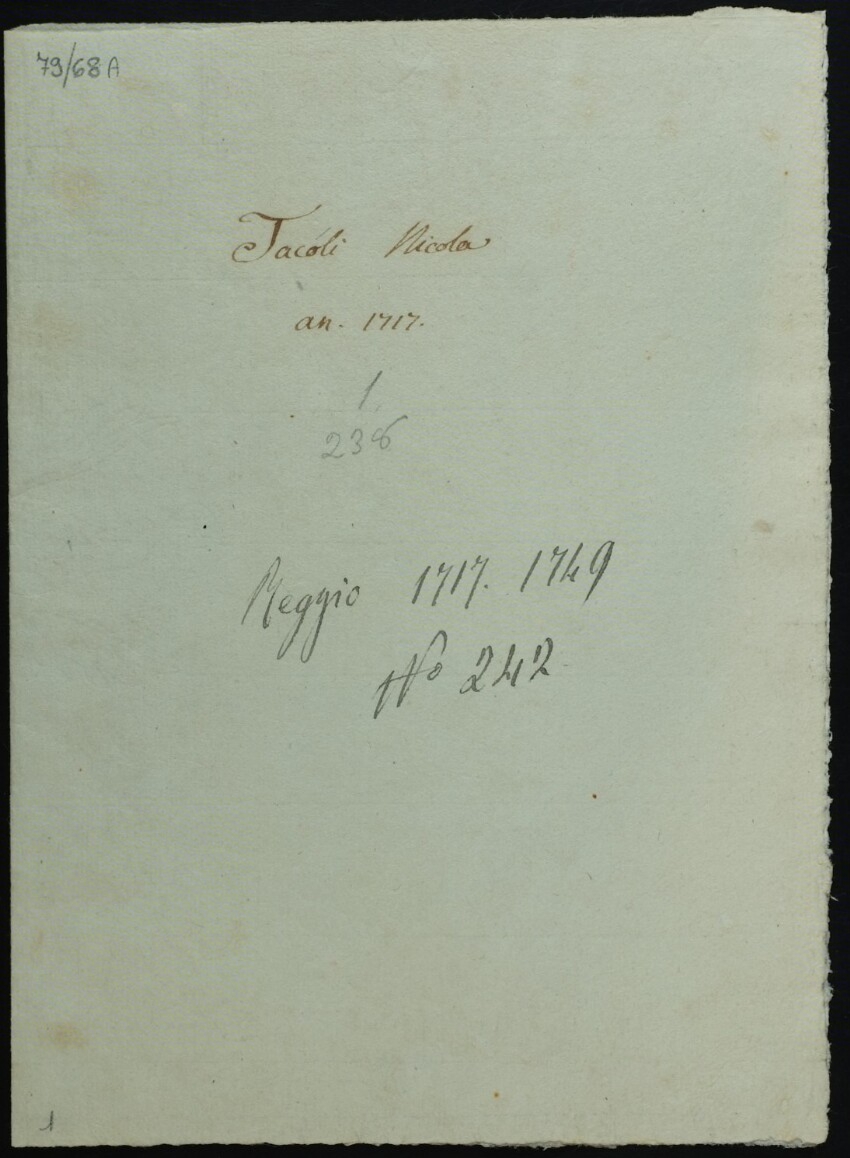 79/68A
Tacóli Nicola
an. 1717.
1.
238
Reggio 1717. 1749
No 242
1